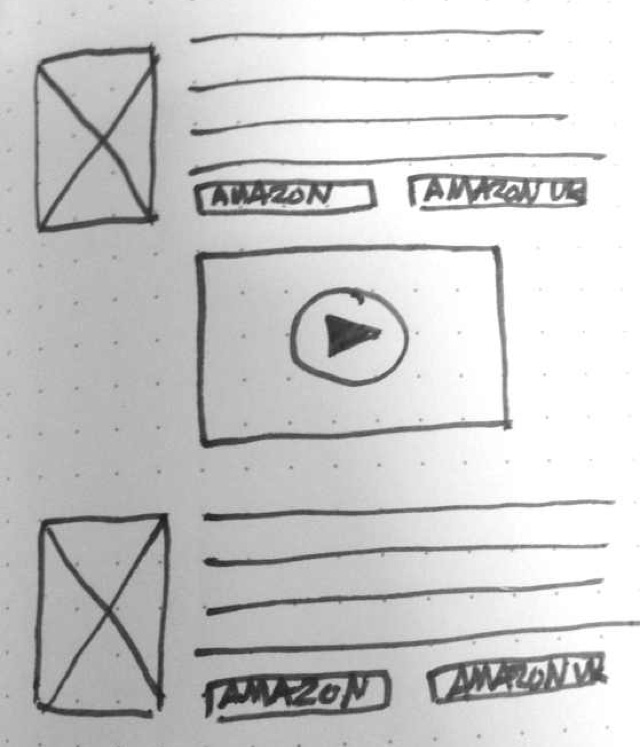 AMAZON AMAZON UK
AMAZON AMAZON UK